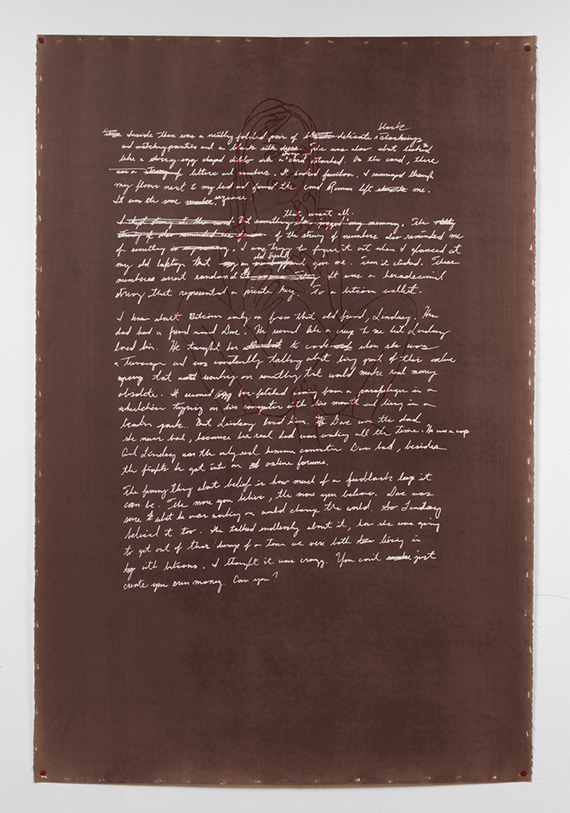 black
Inside there was a neatly folded pair of delicate stockings
and matching panties and a black silk dress. She was clear about
like a dowry, egg shaped On the card, there
was a string of letters and numbers. It looked random. I rummaged through
my floor next to my bed and found the card Roman left me.
It was the same sequence.
that wasn't all.
something my memory. The
of the string of numbers also reminded me
of something I was trying to figure it out when I glanced at
my old laptop, that gave me. Then it clicked. These
numbers weren't random. It was a hexadecimal
string that represented a private key. To a bitcoin wallet.
I knew about Bitcoin only from that old friend, Lindsay. Her
dad had a friend named Dave. He seemed like a creep to me but Lindsay
loved him. He taught her to code when she was
a teenager and was constantly talking about being part of this online
group that was working on something that would make real money
obsolete. It seemed far fetched coming from a paraplegic in a
wheelchair typing on his computer with his mouth and living in a
trailer park. But Lindsay loved him. Dave was the dad
she never had, because her real dad was working all the time. He was a cop
and Lindsay was the only real human connection Dave had, besides
the fights he got into on online forums.
The funny thing about belief is how much of a feedback loop it
can be. The more you believe, the more you believe. Dave was
sure what he was working on would change the world. So Lindsay
believed it too. She talked endlessly about it, how she was going
to get out of their dump of a town we were both living in
with bitcoins. I thought it was crazy. You can't just
create your own money. Can you?